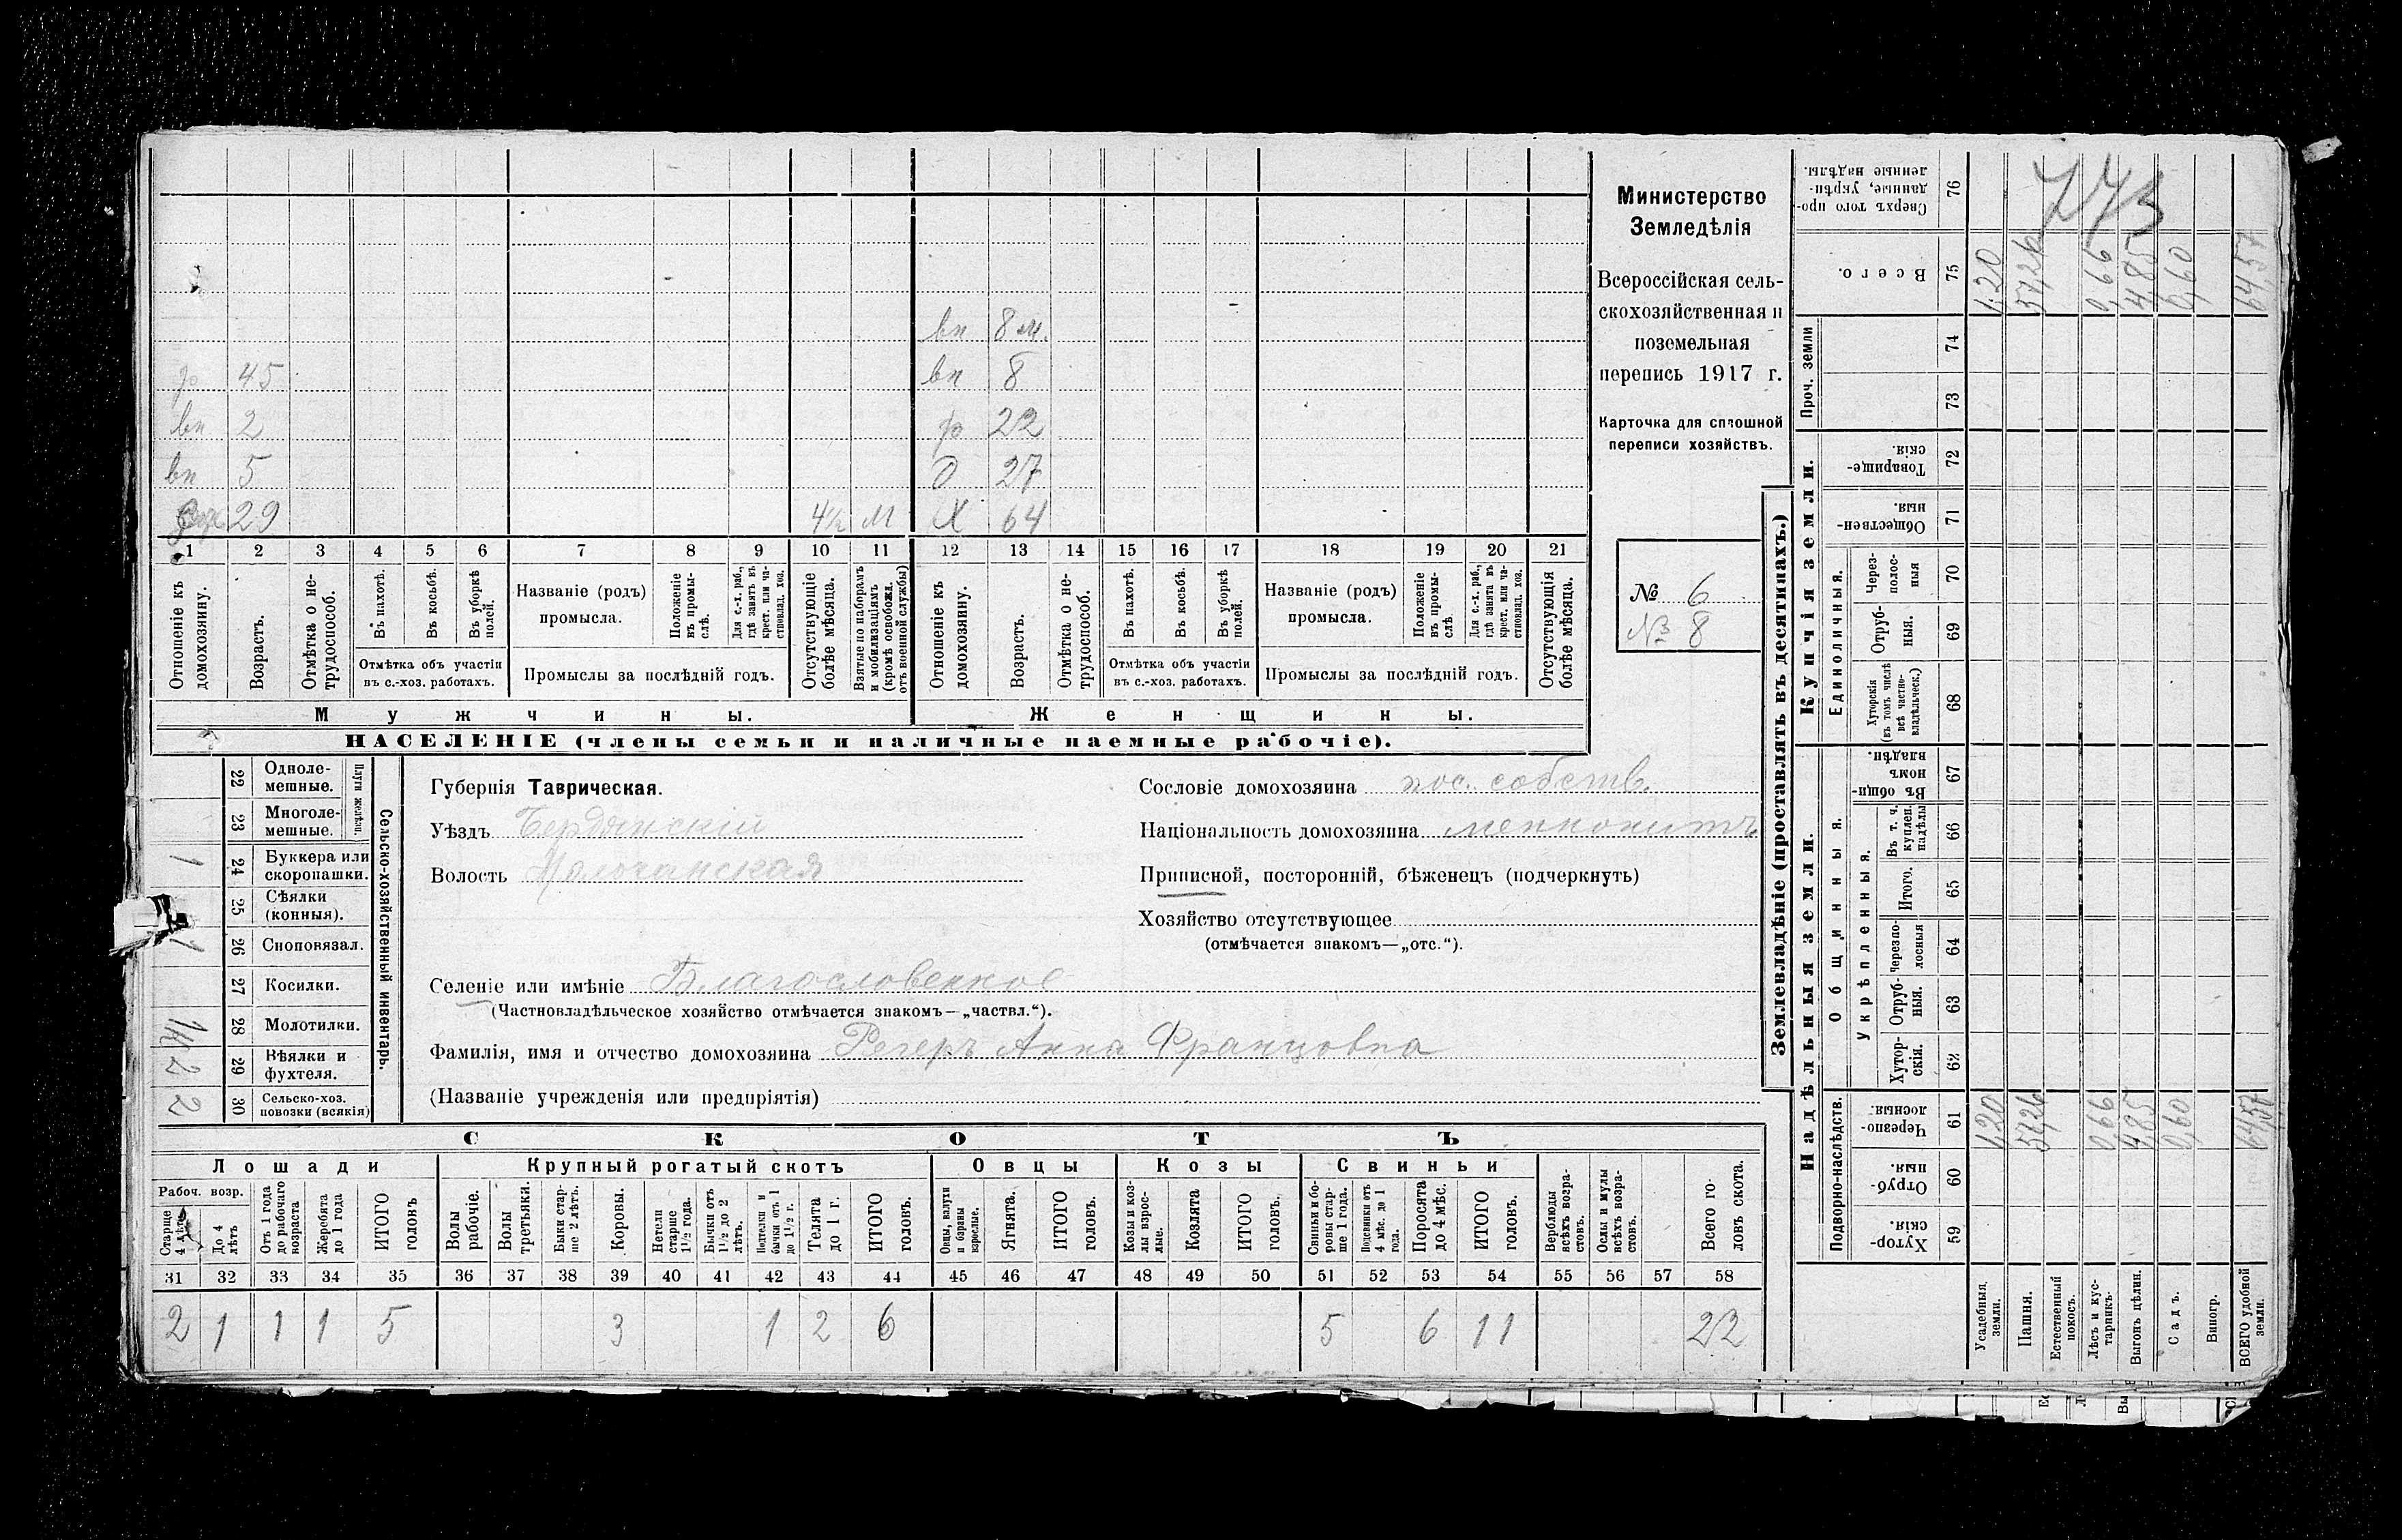 вн 8 м.
р 45 вн 8
вн 2 р 22
вн 5 О 27
29 4½ М Х 64
1 2 3 4 5 6 7 8 9 10 11 12 13 14 15 16 17 18 19 20 21
Отношеніе къ домохозяину.
Возрастъ.
Отмѣтка о не-
трудоспособ.
Въ пахотѣ.
Въ косьбѣ.
Въ уборкѣ полей.
Отмѣтка объ участіи
въ с.-хоз. работахъ.
Названіе (родъ)
промысла.
Положеніе въ промы-
слѣ.
Для с.-х. раб., гдѣ занятъ въ крест. или ча-
стновлад. хоз.
Промыслы за послѣдній годъ.
Отсутствующіе болѣе мѣсяца.
Взятые по наборамъ и мобилизаціямъ (кромѣ освобожд. отъ военной службы)
Отношеніе къ домохозяину.
Возрастъ.
Отмѣтка о не-
трудоспособ.
Въ пахотѣ.
Въ косьбѣ.
Въ уборкѣ полей.
Отмѣтка объ участіи
въ с.-хоз. работахъ.
Названіе (родъ)
промысла.
Положеніе въ промы-
слѣ.
Для с.-х. раб., гдѣ занята въ крест. или ча-
стновлад. хоз.
Промыслы за послѣдній годъ.
Отсутствующія болѣе мѣсяца.
Мужчины.
Женщины.
НАСЕЛЕНІЕ (члены семьи и наличные наемные рабочіе).
Министерство
Земледѣлія
Всероссійская сель-
скохозяйственная и
поземельная
перепись 1917 г.
Карточка для сплошной
переписи хозяйствъ.
№ 6
№ 8
Сельско-хозяйственный инвентарь.
Плуги желѣзн.
22 Одноле-
мешные.
23 Многоле-
мешные.
24 Буккера или
скоропашки. 1
25 Сѣялки
(конныя).
26 Сноповязал. 1
27 Косилки.
28 Молотилки.
29 Вѣялки и
фухтеля. 2
30 Сельско-хоз.
повозки (всякія) 2
Губернія Таврическая.
Уѣздъ Бердянскій
Волость Молочанская
Сословіе домохозяина пос. собств.
Національность домохозяина меннонитъ
Приписной, посторонній, бѣженецъ (подчеркнуть)
Хозяйство отсутствующее
(отмѣчается знакомъ—„отс.“).
Селеніе или имѣніе Благословенное
(Частновладѣльческое хозяйство отмѣчается знакомъ—„частвл.“).
Фамилія, имя и отчество домохозяина Регеръ Анна Францовна
(Названіе учрежденія или предпріятія)
СКОТЪ
Лошади
Крупный рогатый скотъ
Овцы
Козы
Свиньи
Рабоч. возр.
Старше 4 лѣтъ
До 4 лѣтъ
Отъ 1 года до рабочаго возраста
Жеребята до 1 года
ИТОГО головъ
Волы рабочіе.
Волы третьяки.
Быки стар-
ше 2 лѣтъ.
Коровы.
Нетели старше 1½ года.
Бычки отъ 1½ до 2 лѣтъ.
Подтелки и бычки отъ 1 до 1½ г.
Телята до 1 г.
ИТОГО головъ.
Овцы, валухи и бараны взрослые.
Ягнята.
ИТОГО головъ.
Козы и коз-
лы взрос-
лые.
Козлята
ИТОГО головъ.
Свиньи и бо-
ровы стар-
ше 1 года.
Подсвинки отъ 4 мѣс. до 1 года.
Поросята до 4 мѣс.
ИТОГО головъ.
Верблюды всѣхъ возра-
стовъ.
Ослы и мулы всѣхъ возра-
стовъ.
Всего го-
ловъ скота.
31 32 33 34 35 36 37 38 39 40 41 42 43 44 45 46 47 48 49 50 51 52 53 54 55 56 57 58
2 1 1 1 5 3 1 2 6 5 6 11 22
Землевладѣніе (проставлять въ десятинахъ.)
Надѣльныя земли.
Купчія земли.
Проч. земли
Подворно-наслѣдств.
Общинныя.
Укрѣпленныя.
Единоличныя.
Сверхъ того про-
данные, укрѣп-
ленные надѣлы. 76
Всего. 75
74
73
Товарище-
скія 72
Обществен-
ныя. 71
Через-
полос-
ныя 70
Отруб-
ныя. 69
Хуторскія (въ томъ числѣ всѣ частно-
владѣльческ.) 68
Въ общи-
номъ владѣн. 67
Въ т. ч. куплен. надѣлы 66
Итого. 65
Черезпо-
лосныя 64
Отруб-
ныя. 63
Хутор-
скія. 62
Черезпо-
лосныя. 61
Отруб-
ныя. 60
Хутор-
скія. 59
Усадебныя земли.
Пашня.
Естественный покосъ.
Лѣсъ и кус-
тарникъ.
Выгонъ цѣлин.
Садъ.
Виногр.
ВСЕГО удобной земли.
773
1,20 57,26 0,66 4,85 0,60 64,57
1,20 57,26 0,66 4,85 0,60 64,57